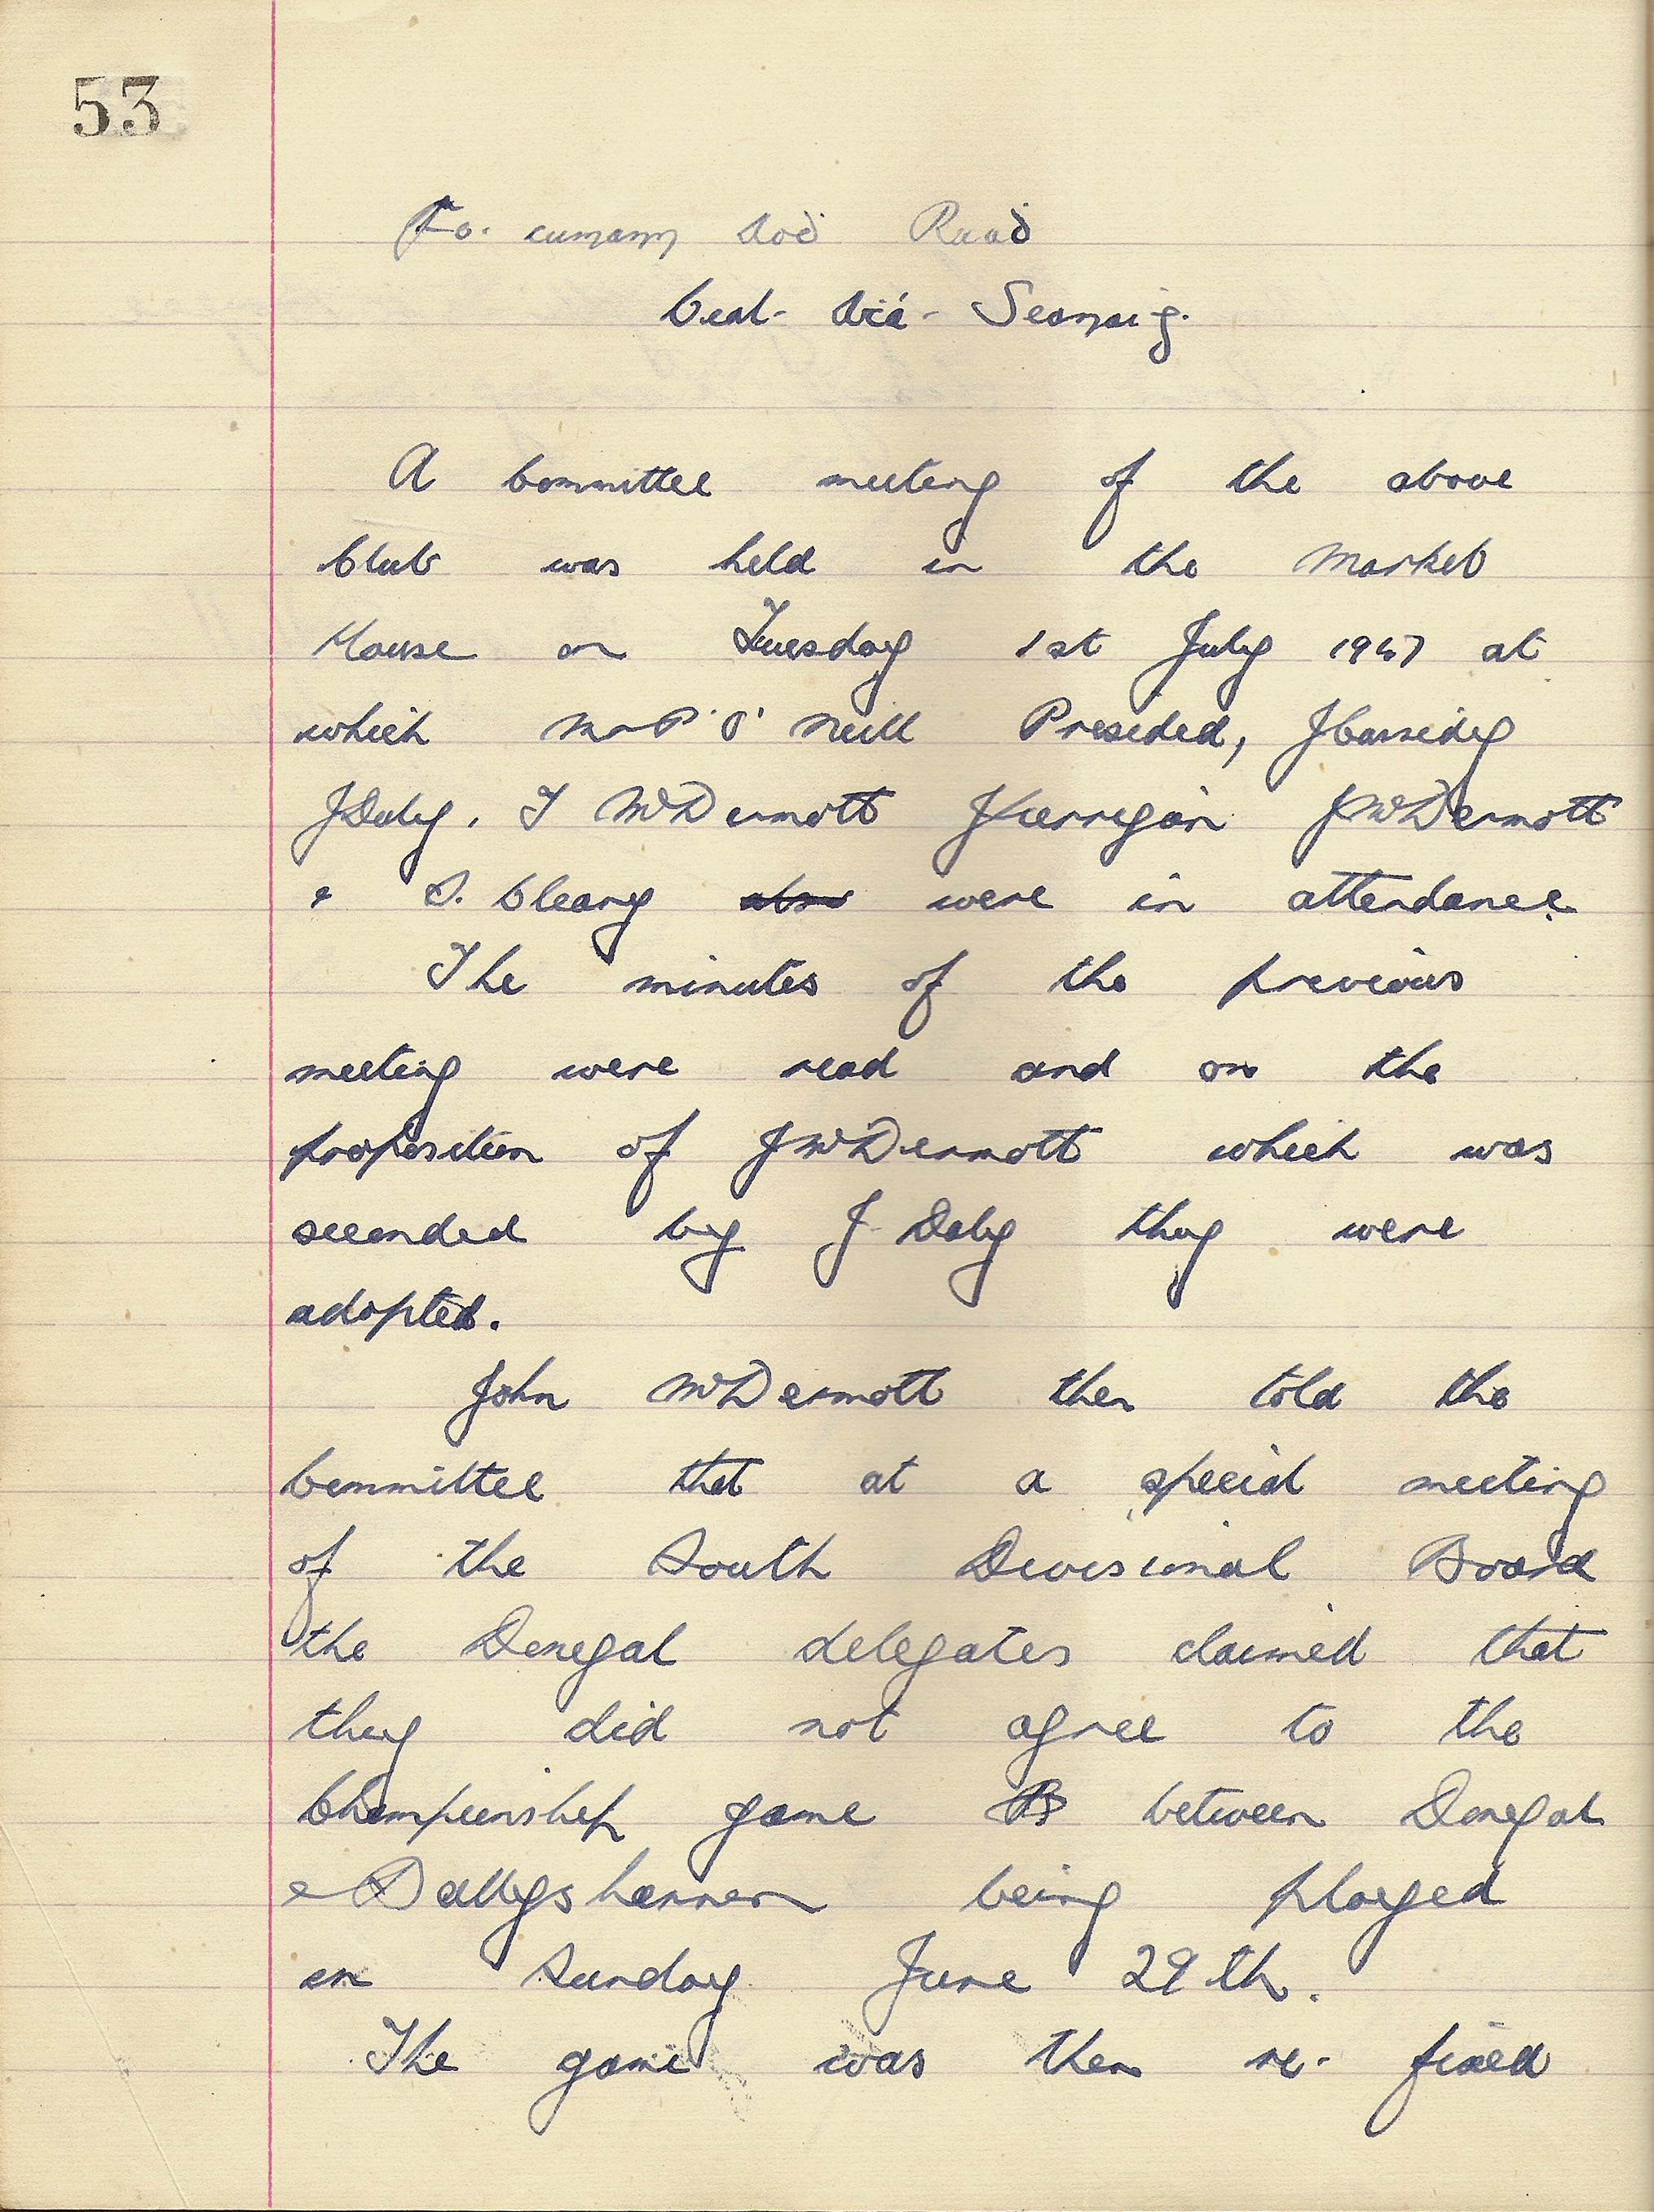 53
cumann Aoḋ Ruaḋ
Beal- Áṫa- Seanaiġ.
A Committee meeting of the above
Club was held in the Market
House on Tuesday 1st July 1947 at
which Mr P. O' Neill Presided, J Cassidy
J Daly, T McDermott J Kerrigan J McDermott
& S. Cleary also were in attendance.
The minutes of the previous
meeting were read and on the
proposition of J McDermott which was
seconded by J Daly they were
adopted.
John McDermott then told the
Committee that at a special meeting
of the South Divisional Board
the Donegal delegates claimed that
they did not agree to the
Championship game B between Donegal
& Ballyshannon being played
on Sunday June 29th.
The game was then re- fixed